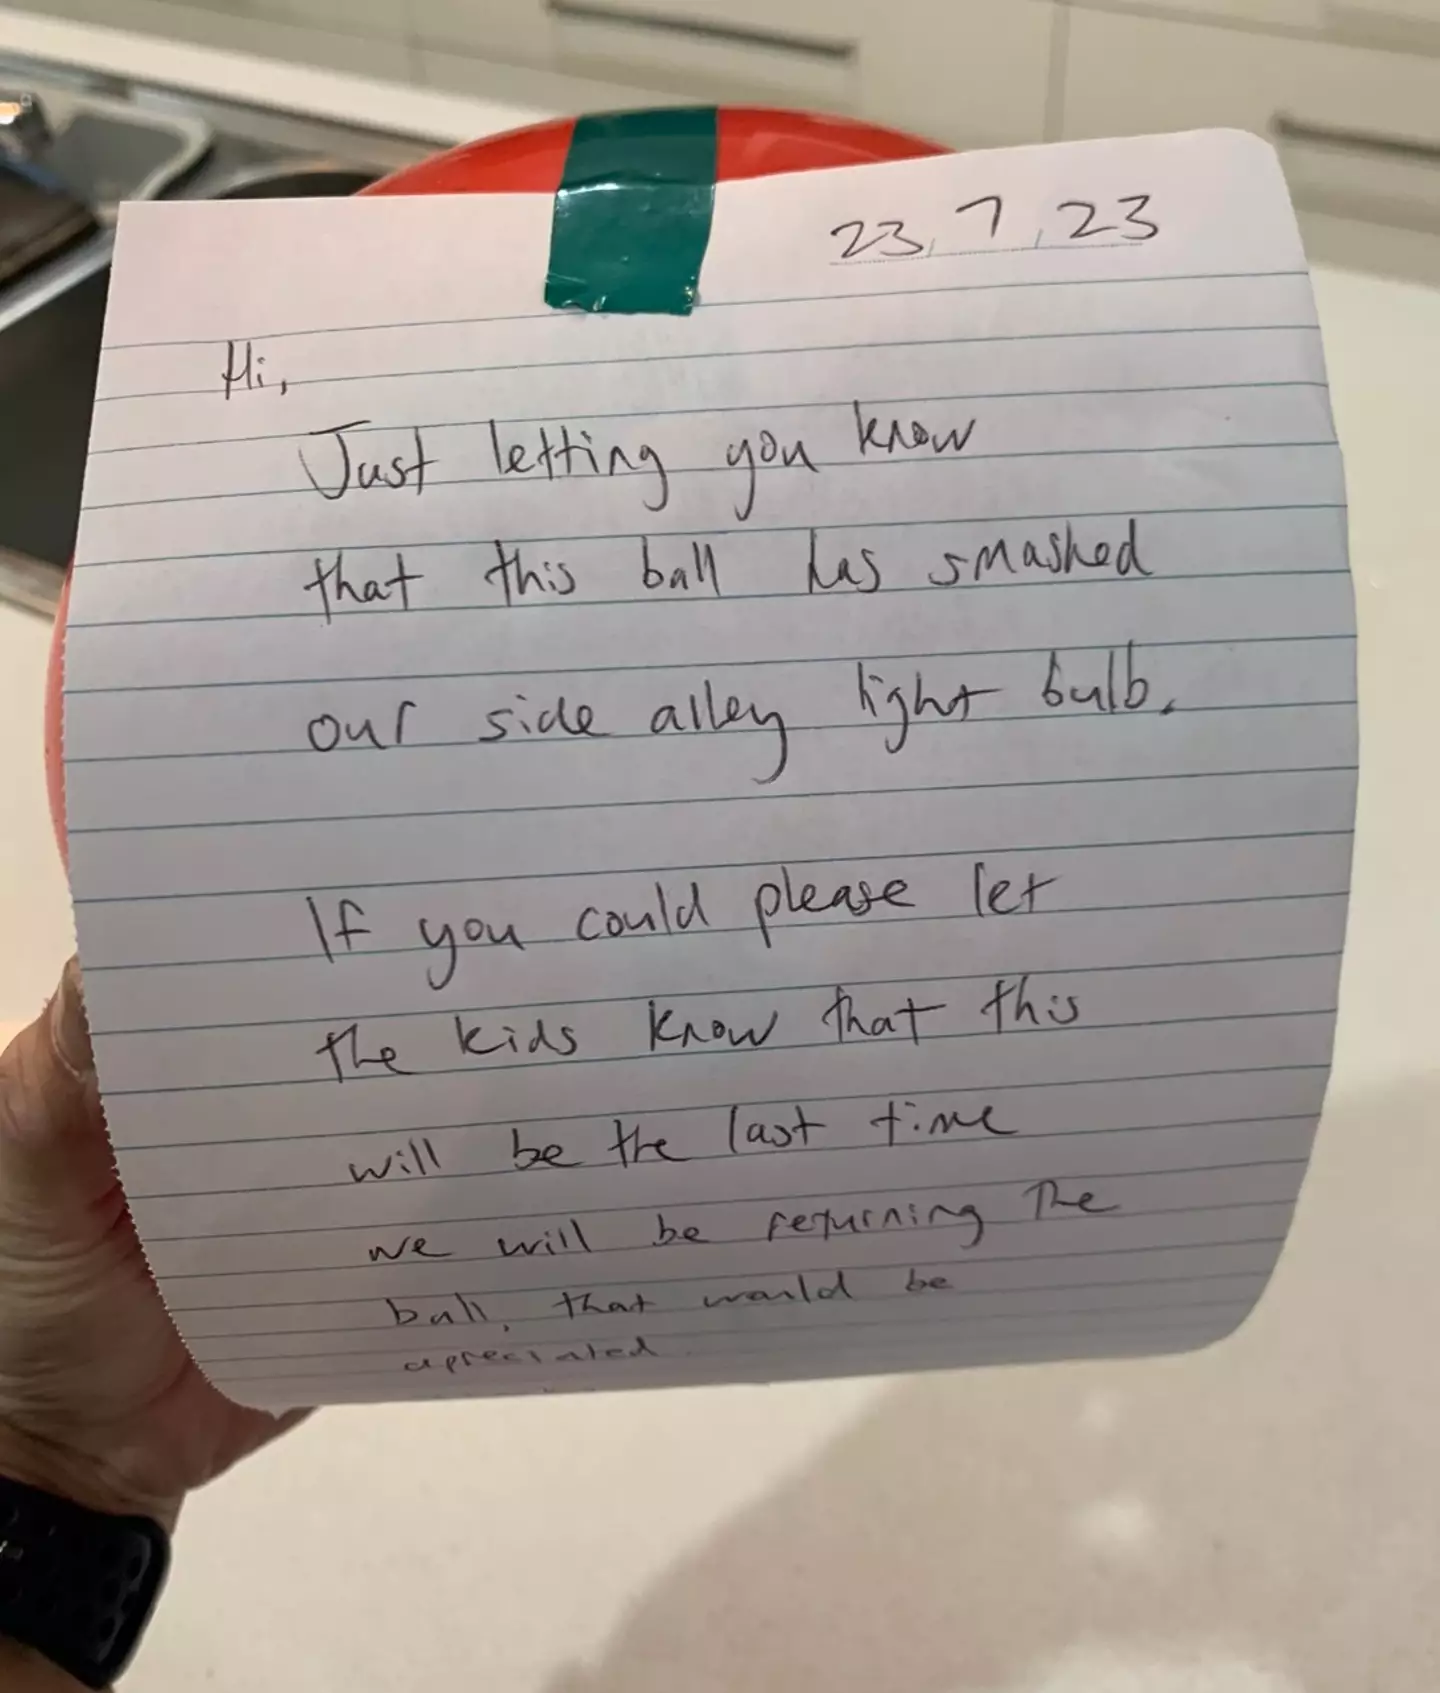 23, 7, 23
Hi,
Just letting you know
that this ball has smashed
our side alley light bulb.
If you could please let
the kids know that this
will be the last time
we will be returning the
ball, that would be
apreciated